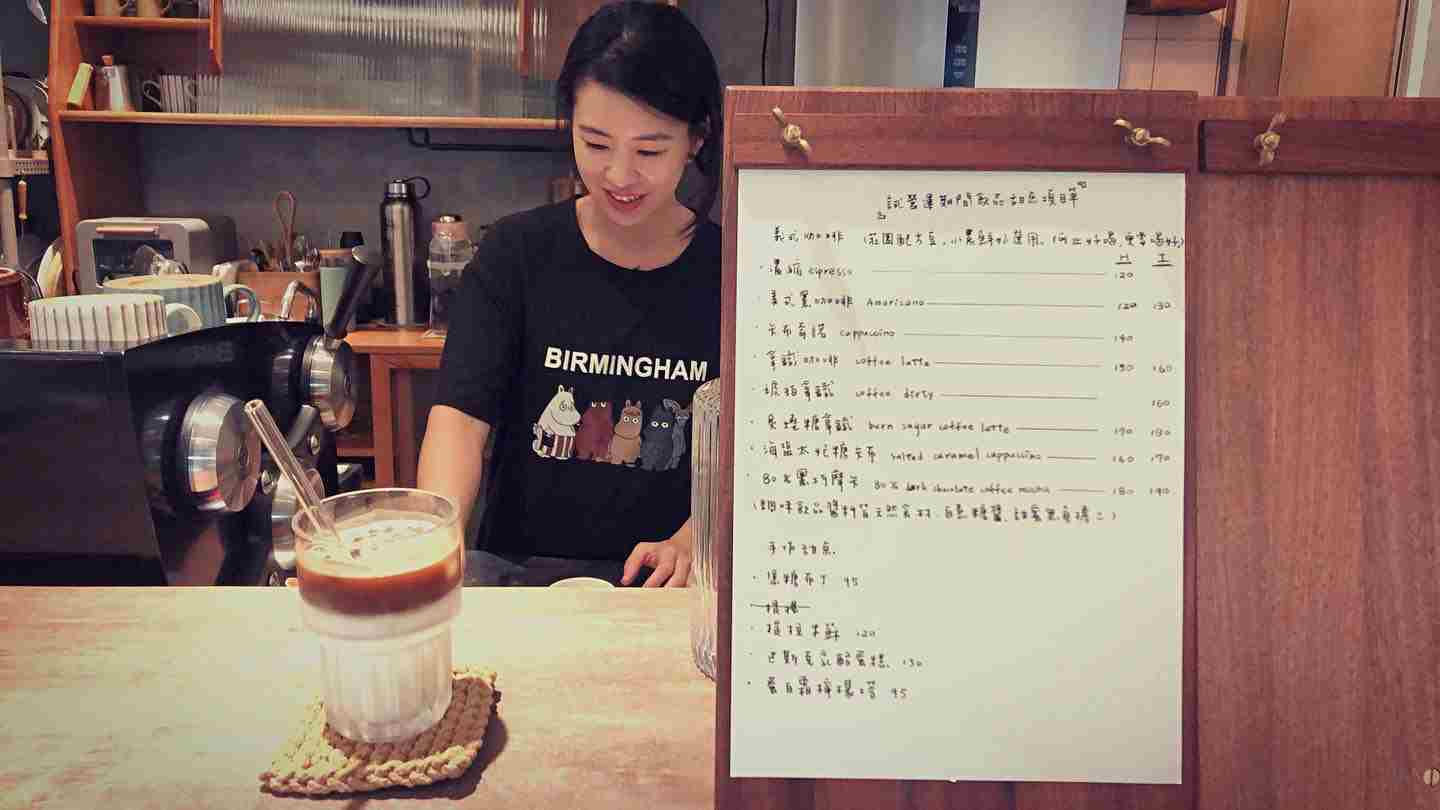 BIRMINGHAM
試營運期間飲品甜點項目單
義式咖啡 (莊園配方豆,小農鮮奶選用。
H I
・濃縮 espresso 120
・美式黑咖啡 Americano 120 130
・卡布奇諾 cappuccino 140
・拿鐵咖啡 coffee latte 150 160
・琥珀拿鐵 coffee dirty 160
・炙燒糖拿鐵 burn sugar coffee latte 170 180
・海鹽太妃糖卡布 salted caramel cappuccino 160 170
・80%黑巧摩卡 80% dark chocolate coffee mocha 180 190
(調味飲品醬料皆天然食材、自熬糖醬
手作甜點
・焦糖布丁 95
・提拉米蘇 120
・巴斯克乳酪蛋糕 130
・蛋白霜檸檬塔 95